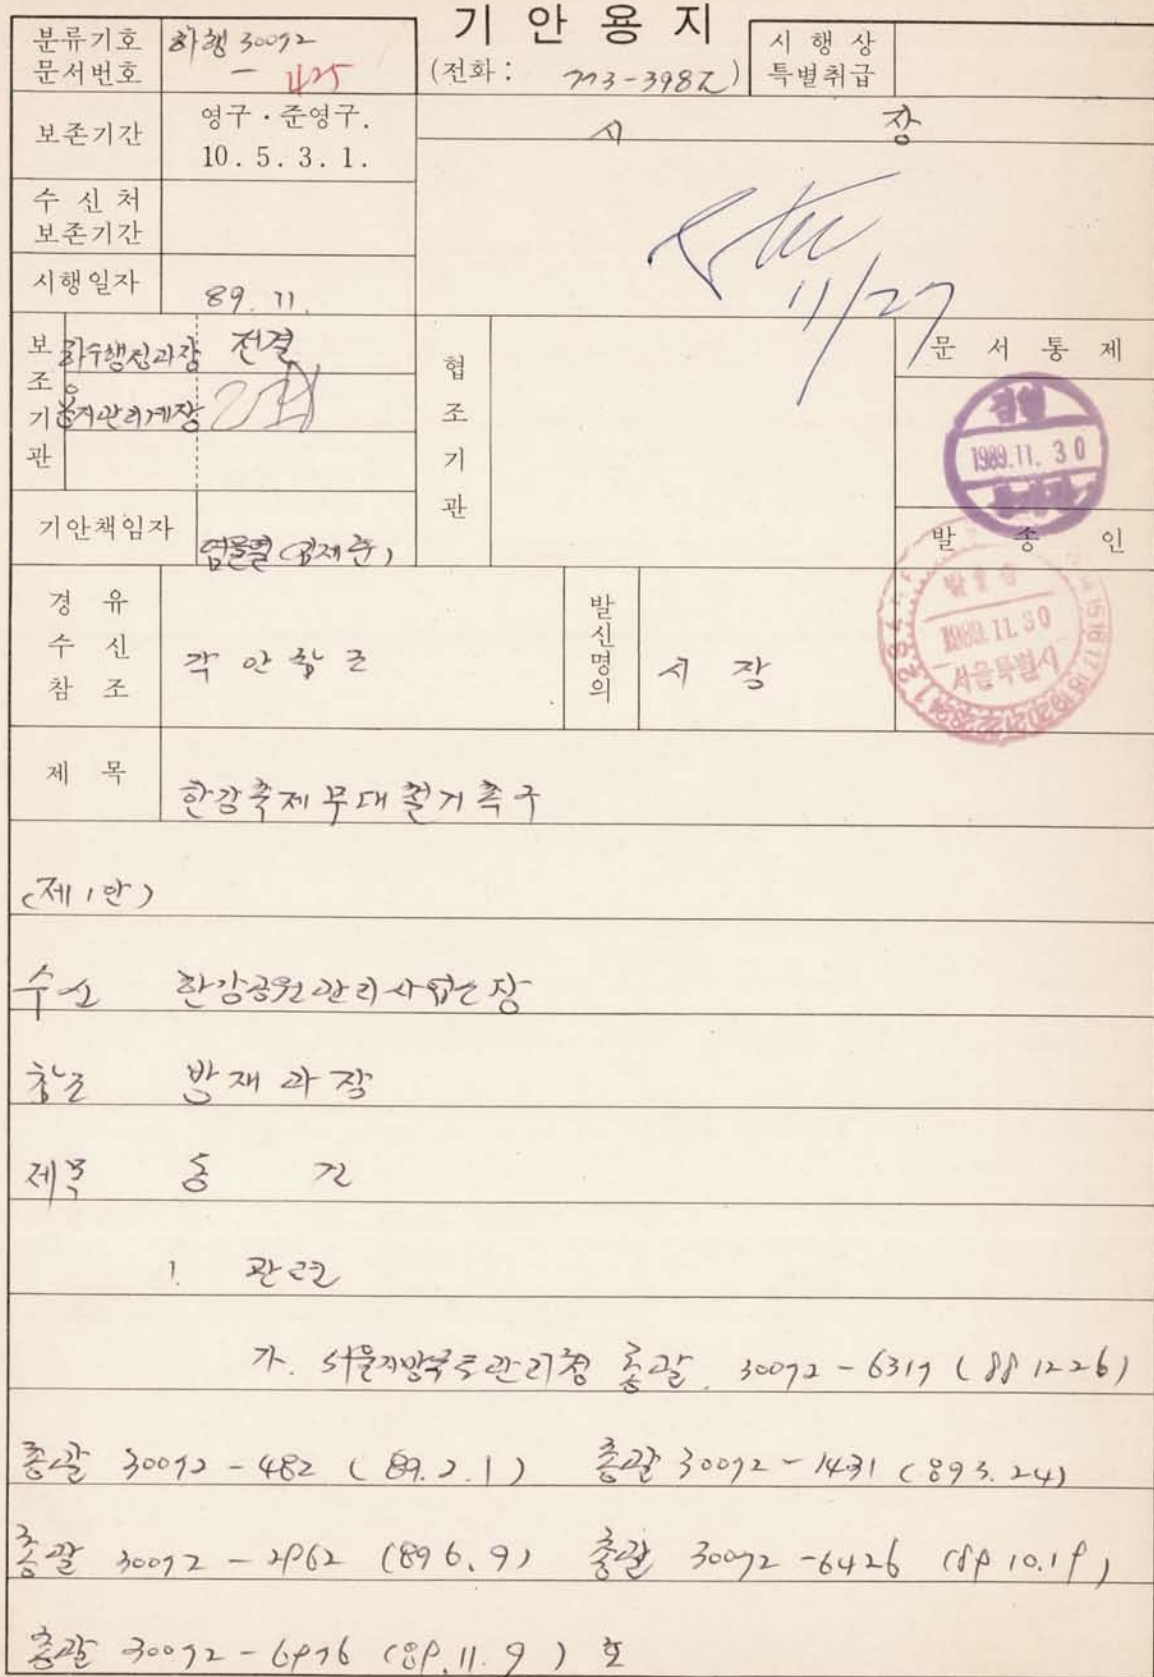 기 안 용 지
분류기호
문서번호
하행 30092
- 425
(전화 : 773-3982)
시 행 상
특별취급
보존기간
영구 · 준영구.
10 . 5 . 3 . 1 .
시 장
수 신 처
보존기간
시행일자
89. 11.
11/27
보조기관
하수행정과장 전결
용지관리계장
협조기관
문 서 통 제
검열
1989. 11. 30
기안책임자
발 송 인
발송
1989. 11. 30
서울특별시
경 유
수 신
참 조
각 안 참 조
발신명의
시 장
제 목
한강축제무대 철거 촉구
(제1안)
수신 한강공원관리사업소장
참조 방재과장
제목 동 건
1. 관련
가. 서울지방국토관리청 총괄. 30092-6319 (88 12 26)
총괄 30092 - 482 (89. 2. 1) 총괄 30092 - 1431 (89 3. 24)
총괄 30092 - 2962 (89 6. 9) 총괄 30092 -6426 (89 10. 19)
총괄 30092 - 6976 (89. 11. 9 ) 호